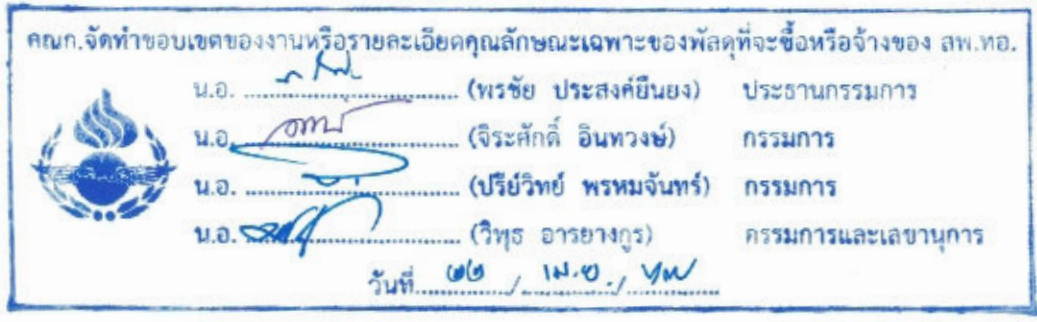 คณก.จัดทำขอบเขตของงานหรือรายละเอียดคุณลักษณะเฉพาะของพัสดุที่จะซื้อหรือจ้างของ สพ.ทอ.
น.อ. .............................. (พรชัย ประสงค์ยืนยง) ประธานกรรมการ
น.อ. .............................. (จิระศักดิ์ อินทวงษ์) กรรมการ
น.อ. .............................. (ปรีย์วิทย์ พรหมจันทร์) กรรมการ
น.อ. .............................. (วิพุธ อารยางกูร) กรรมการและเลขานุการ
วันที่ ๒๒ / เม.ย. /